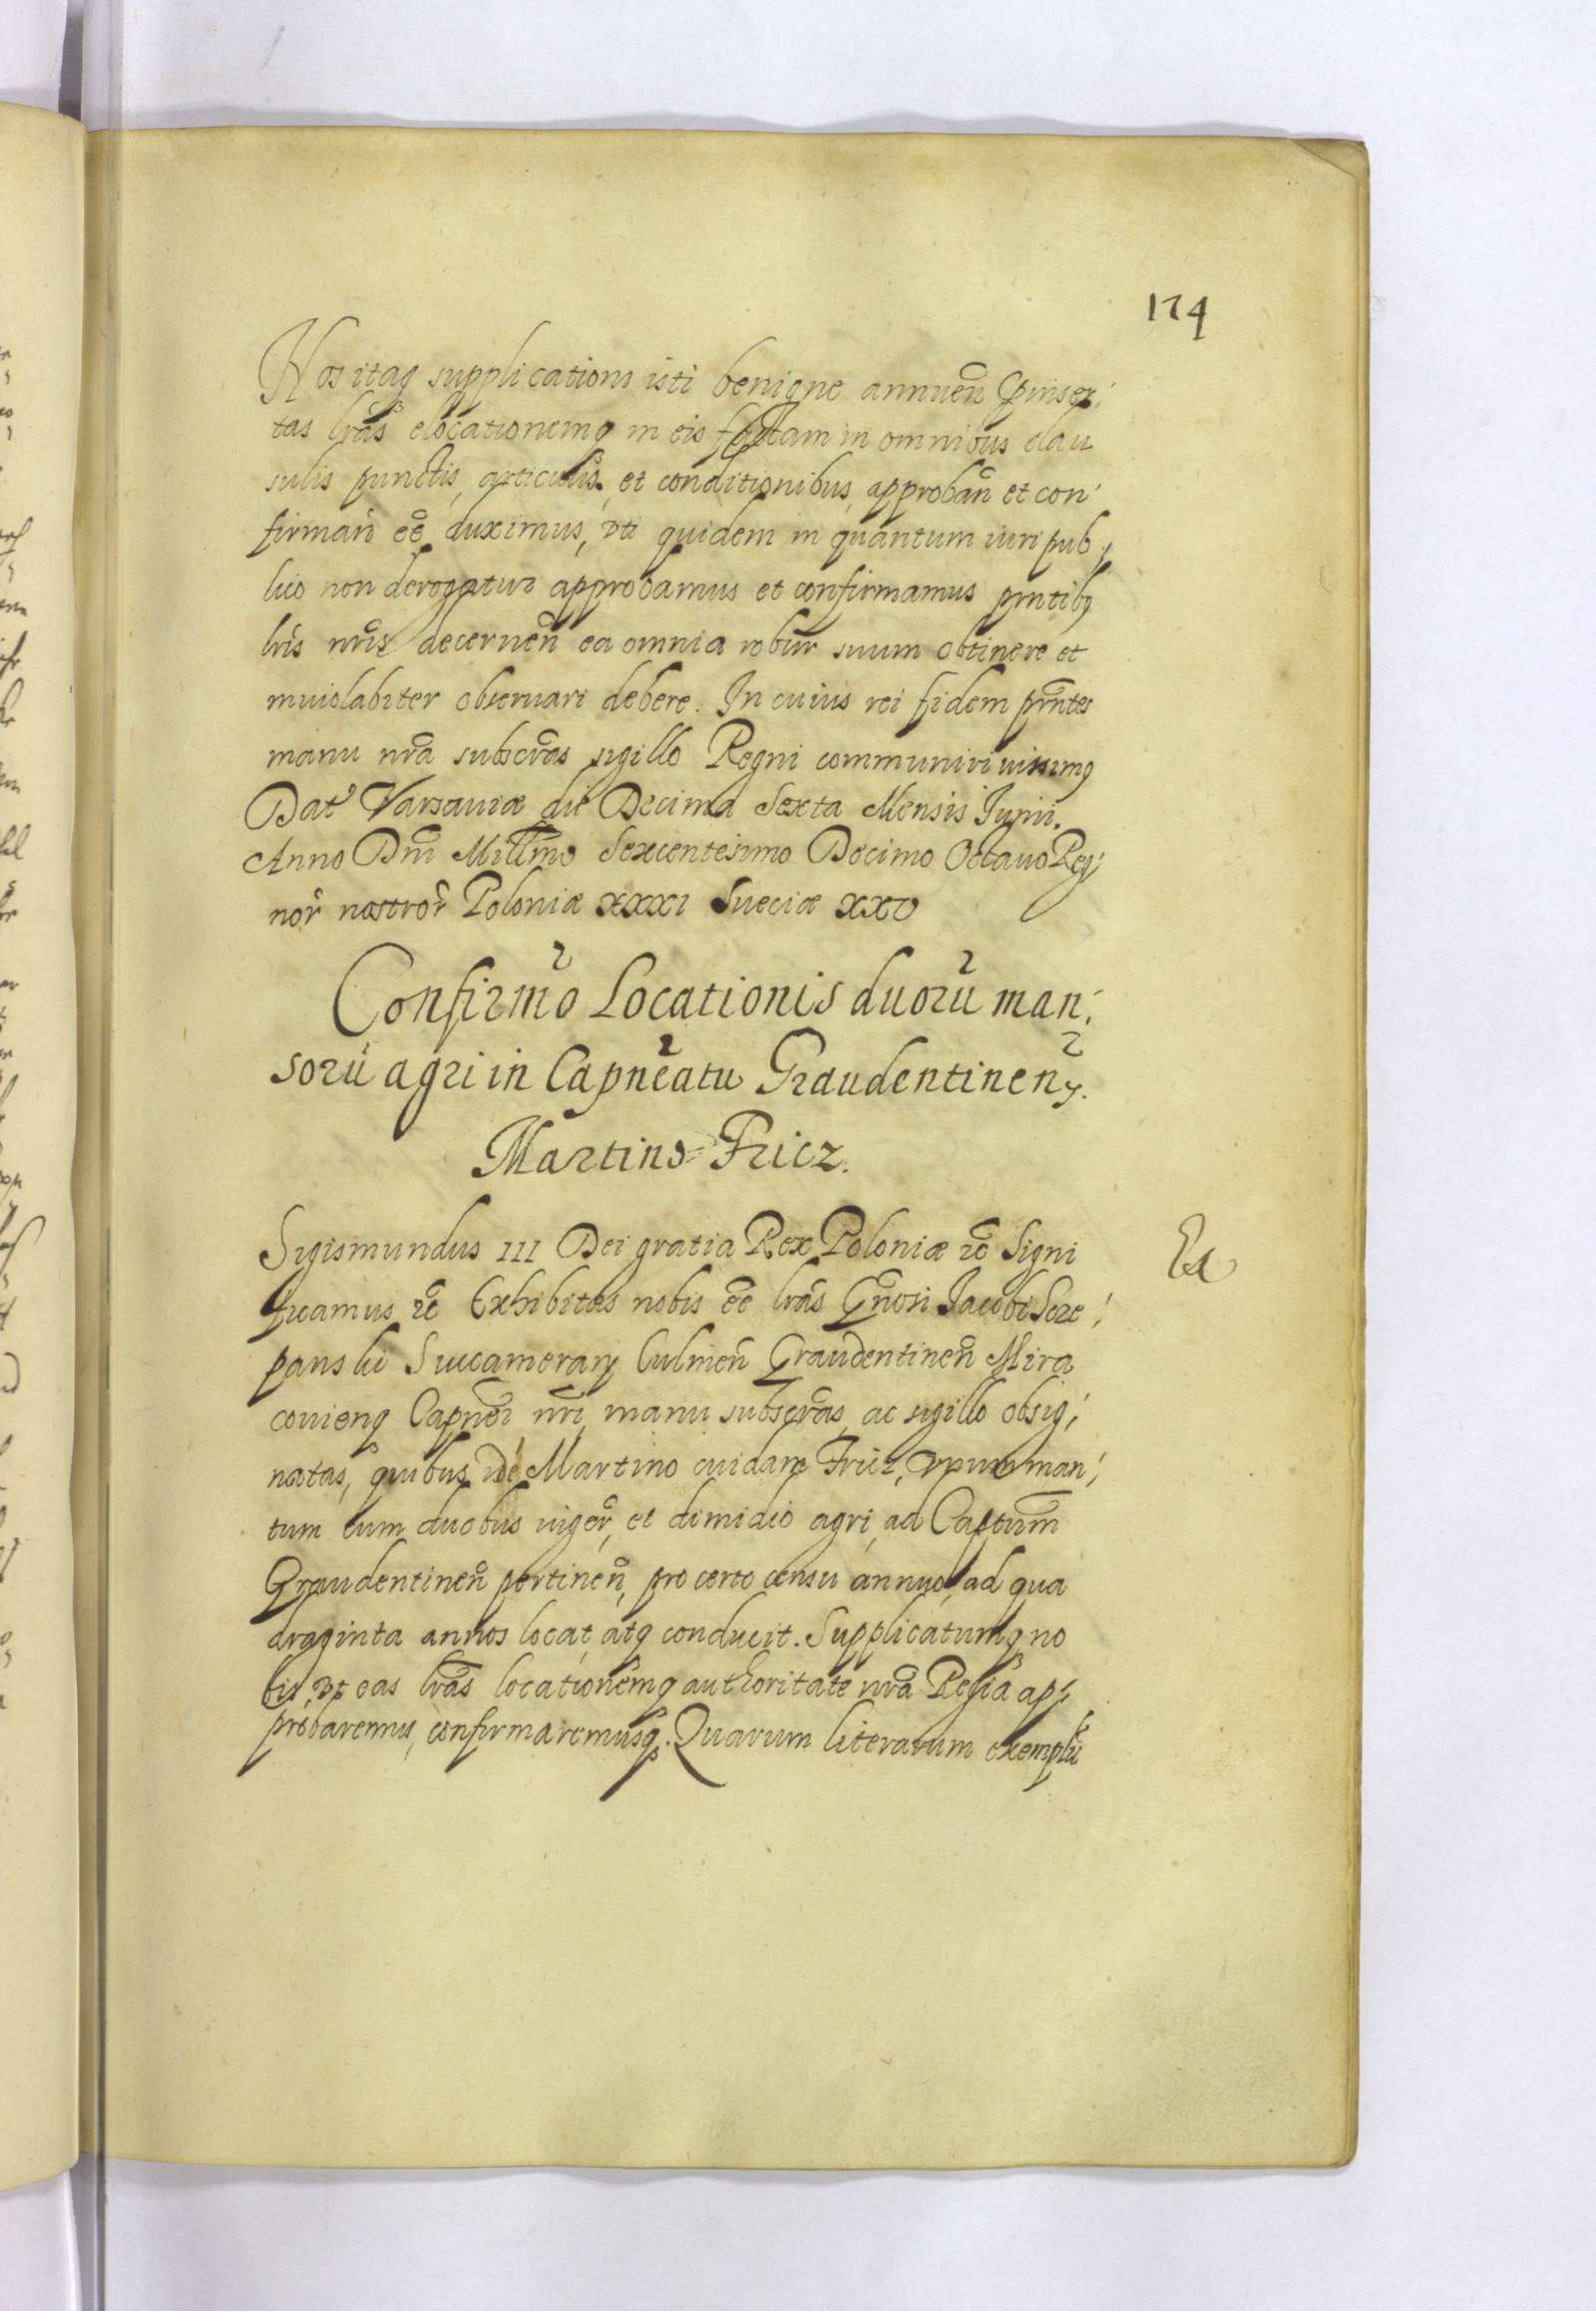 174
Nos itaq supplicationi isti benigne annueñ pinser;
tas lrãs elocationemq in eis factam in omnibus clau
sulis punctis, articulis, et conditionibus, approbañ et con;
firmañ eẽ duximus, vti quidem in quantum iuri pub;
lico non derogatur approbamus et confirmamus pñtibq
lris nris decerneñ ea omnia robur suum obtinere et
inuiolabiter obseruari debere. In cuius rei fidem pñtes
manu nrã subscrãs sigillo Regni communiri iussimq
Dat Varsauiæ die Decima Sexta Mensis Iunii.
Anno Dñi Millmo Sexcentesimo Decimo Octauo Reg;
nor̃ nostror̃ Poloniæ XXXI Sueciæ XXV
Confirmõ Locationis duorũ man;
sorũ agri in Capñeatu Graudentineñ.
Martino Fricz.
Sigismundus III Dei gratia Rex Poloniæ rc̃ Signi
ficamus rc̃ Exhibitas nobis eẽ lrãs Gñosi Iacobi Scze;
panski Succamerarij Culmeñ Graudentineñ Mira
couienq Capñei nri, manu subscrãs, ac sigillo obsig;
natas, quibus idẽ Martino cuidam Fricz, vnum man;
tum cum duobus iuger̃, et dimidio agri, ad Captum̃
Graudentineñ pertineñ, pro certo censu annuo, ad qua
draginta annos locat, atq conducit. Supplicatumq no
bis, vt eas lrãs locationemq authoritate nrã Regia ap;
probaremus, confirmaremusq. Quarum literarum exemplũ